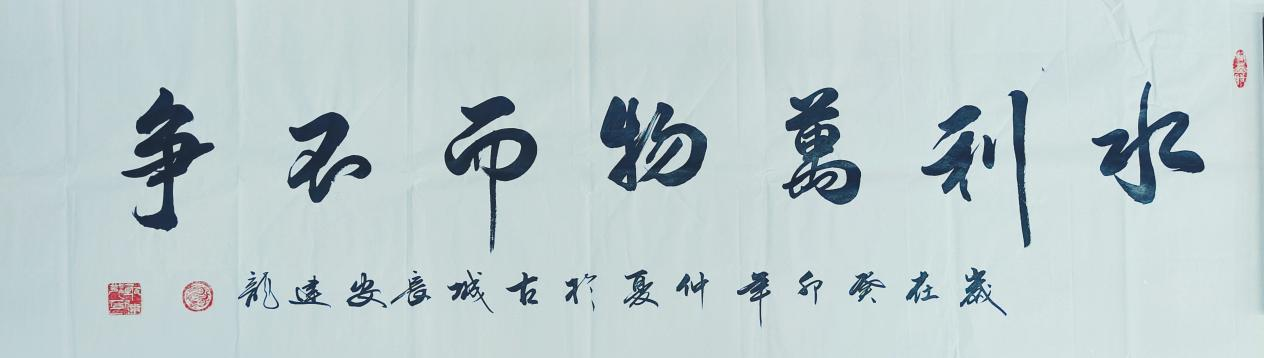 水利萬物而不争
歲在癸卯年仲夏於古城長安建龍